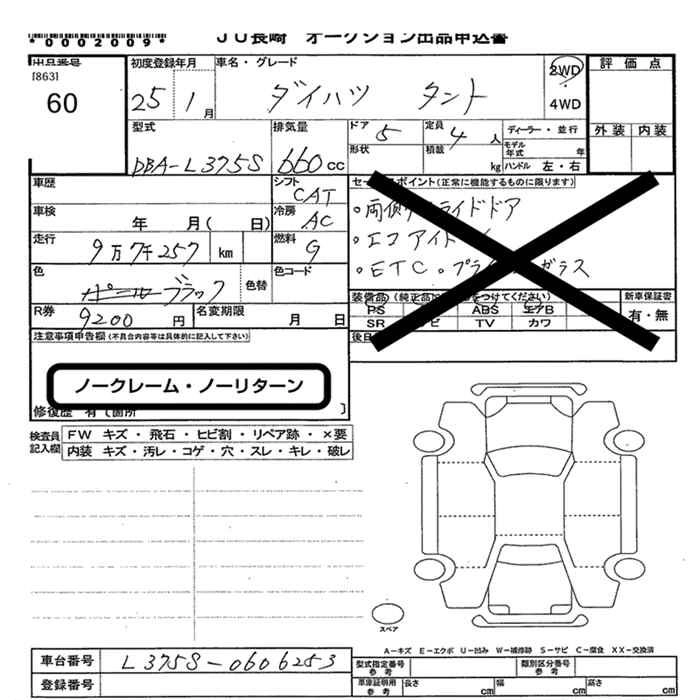 *0002009*
JU長崎 オークション出品申込書
出品番号
[863]
60
初度登録年月
25 1月
車名・グレード
ダイハツ タント
2WD
4WD
評価点
外装 内装
型式
DBA-L375S
排気量
660cc
ドア 5
定員 4人
形状
積載 kg
ディーラー・並行
モデル年式 年
ハンドル 左・右
車歴
シフト CAT
車検 年 月( 日)
冷房 AC
走行 9万7千257 km
燃料 G
色
ブラック
色替
色コード
R券 9200円
名変期限 月 日
ポイント(正常に機能するものに限ります)
・エコアイド
・ETC
ガラス
装備品
PS ABS エアB
SR TV カワ
新車保証書
有・無
注意事項申告欄(不具合内容等は具体的に記入して下さい)
ノークレーム・ノーリターン
修復歴 有〔箇所 〕
検査員記入欄
FW キズ・飛石・ヒビ割・リペア跡・×要
内装 キズ・汚レ・コゲ・穴・スレ・キレ・破レ
スペア
A-キズ E-エクボ U-凹み W-補修跡 S-サビ C-腐食 XX-交換済
車台番号 L375S-0606253
登録番号
型式指定番号参考
類別区分番号参考
車庫証明用参考 長さ cm 幅 cm 高さ cm